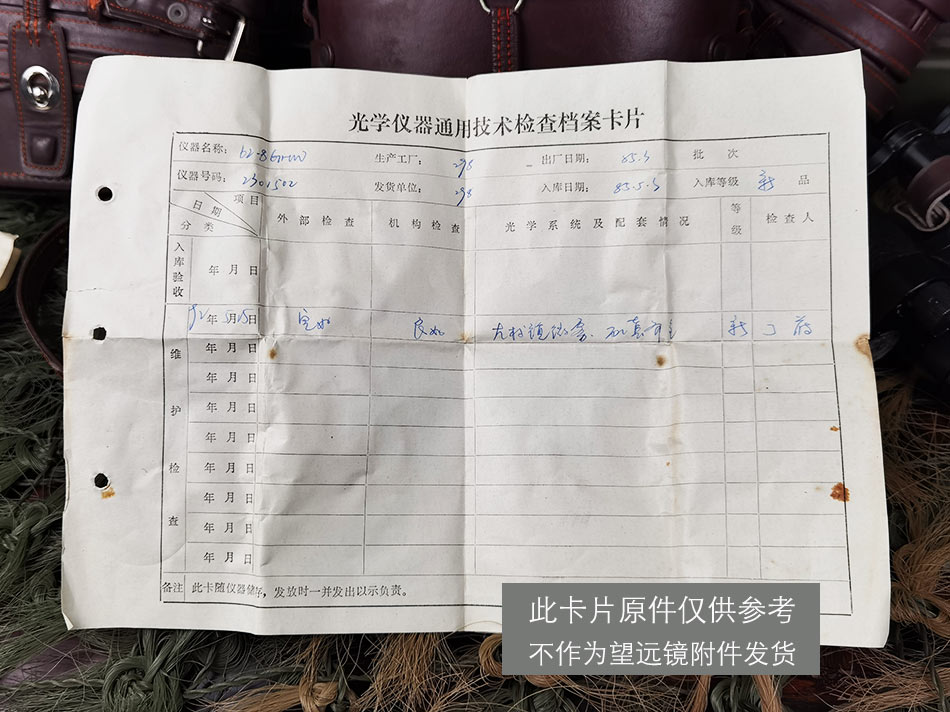 光学仪器通用技术检查档案卡片
仪器名称： 62-8 生产工厂： 298 出厂日期： 85.5 批 次
仪器号码： 2301502 发货单位： 298 入库日期： 85.5.5 入库等级 新 品
项目
日期
分类
外部检查 机构检查 光学系统及配套情况 等级 检查人
入库验收 年 月 日
年 月 日 完好 良好 新
维护检查
年 月 日
年 月 日
年 月 日
年 月 日
年 月 日
年 月 日
年 月 日
年 月 日
备注 此卡随仪器储存，发放时一并发出以示负责。
此卡片原件仅供参考
不作为望远镜附件发货